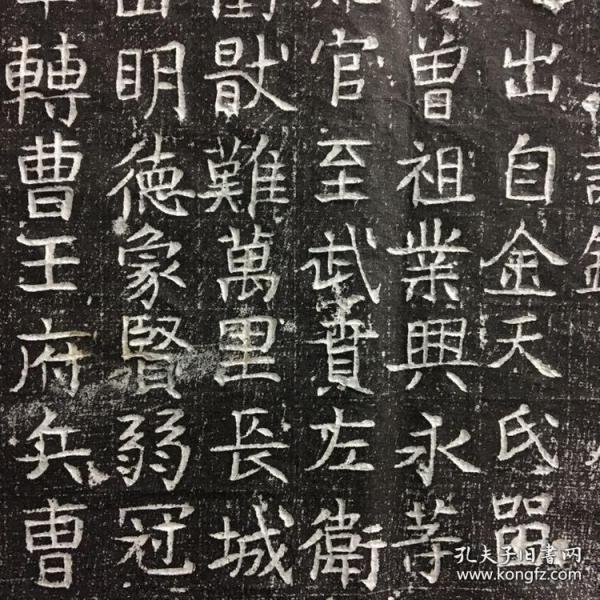 出自金天氏
曾祖業興永等
官至武賁左衛
難萬里長城
明德象賢弱冠
轉曹王府兵曹
孔夫子旧书网
www.kongfz.com